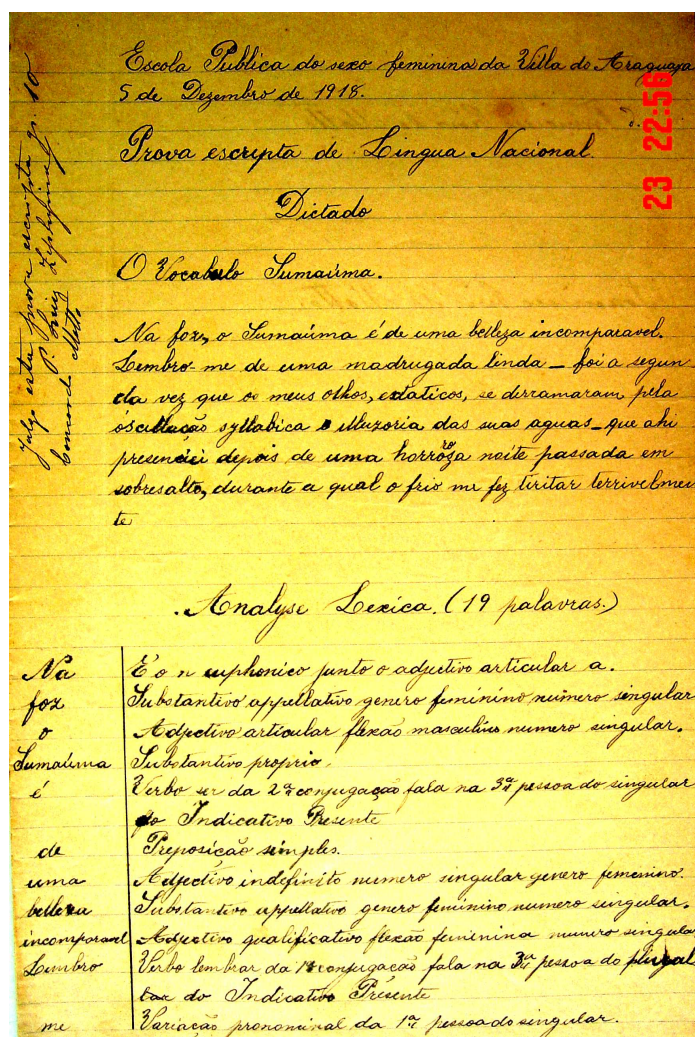 Escola Publica do sexo feminina da Villa do Araguaya
5 de Dezembro de 1918.
Prova escripta de Lingua Nacional.
Dictado
O Vocabulo Sumaúma.
Na foz, o Sumaúma é de uma belleza incomparavel.
Lembro-me de uma madrugada linda _ foi a segun
da vez que os meus olhos, extaticos, se derramaram pela
oscillação syllabica e illuzoria das suas aguas _ que ahi
presenciei depois de uma horroroza noite passada em
sobresalto, durante a qual o frio me fez tiritar terrivelmen
te
Analyse Lexica. (19 palavras.)
Na É o n euphonico junto o adjectivo articular a.
foz Substantivo appellativo genero feminino numero singular
o Adjectivo articular flexão masculino numero singular.
Sumaúma Substantivo proprio.
é Verbo ser da 2ª conjugação fala na 3ª pessoa do singular
do Indicativo Presente
de Preposição simples.
uma Adjectivo indefinito numero singular genero feminino.
belleza Substantivo appellativo genero feminino numero singular.
incomparavel Adjectivo qualificativo flexão feminina numero singular
Lembro Verbo lembrar da 1ª conjugação fala na 3ª pessoa do
do Indicativo Presente
me Variação pronominal da 1ª pessoa do singular.
Julgo esta prova escripta gr. 10
23 22:56